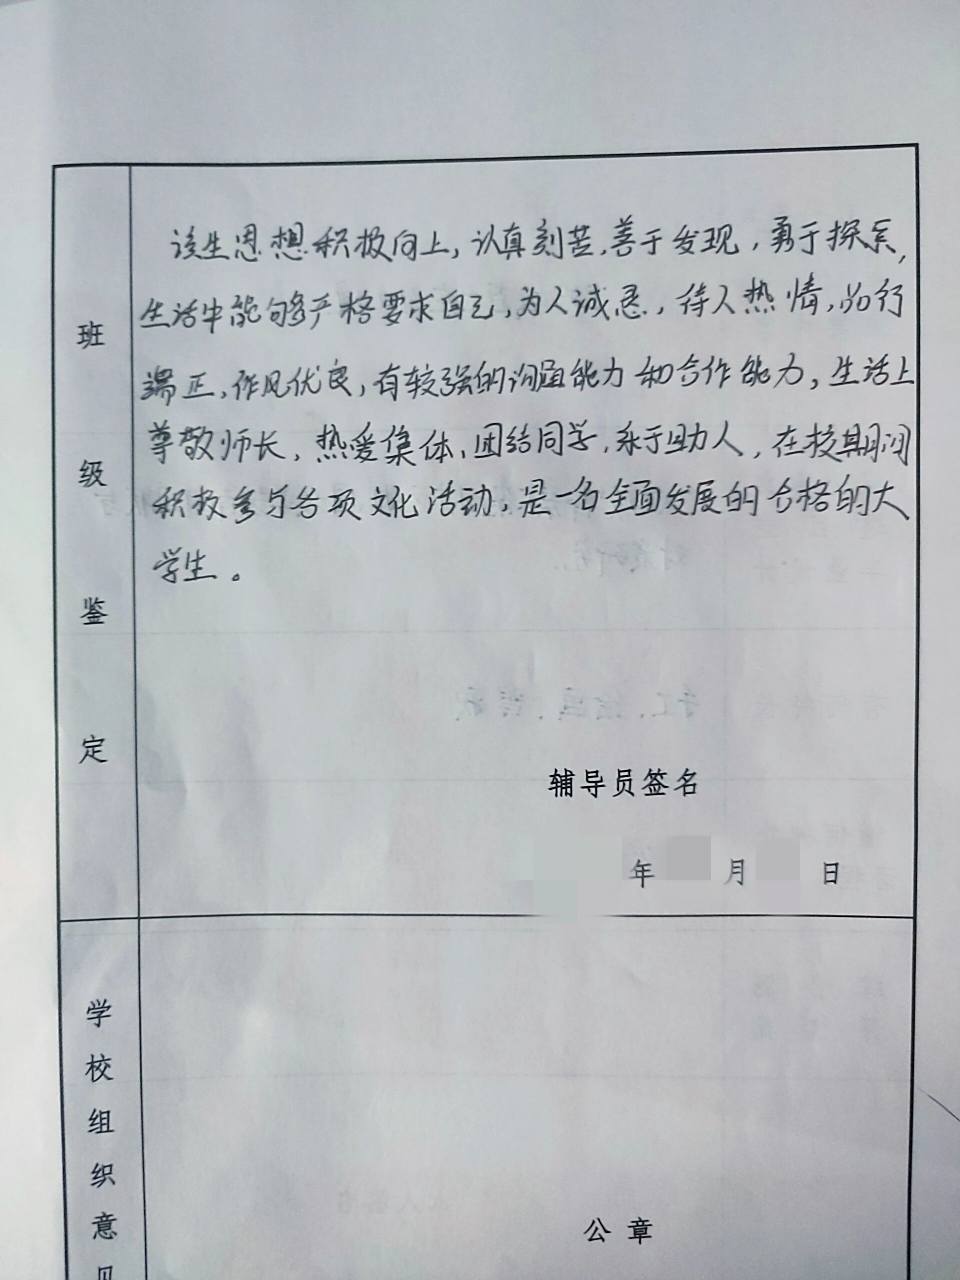 班级鉴定
该生思想积极向上，认真刻苦，善于发现，勇于探索，
生活中能够严格要求自己，为人诚恳，待人热情，品行
端正，作风优良，有较强的沟通能力和合作能力，生活上
尊敬师长，热爱集体，团结同学，乐于助人，在校期间
积极参与各项文化活动，是一名全面发展的合格的大
学生。
辅导员签名
年 月 日
学校组织意见
公章